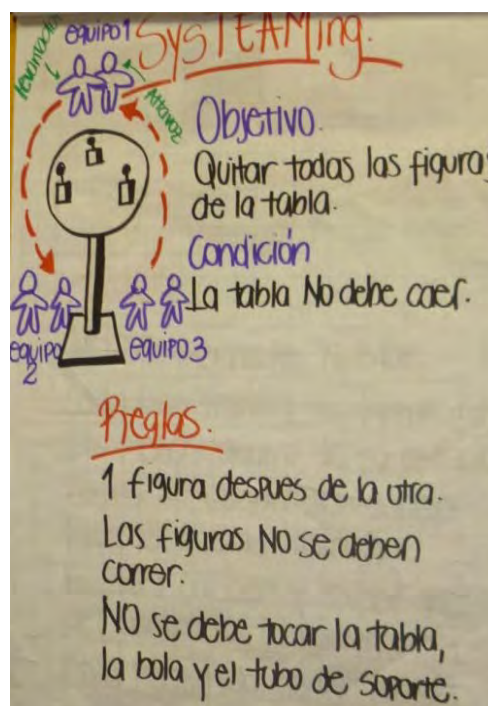 equipo 1
SysTEAMing.
Altavoz
Objetivo.
Quitar todas las figuras
de la tabla.
Condición
La tabla No debe caer.
equipo
2
equipo 3
Reglas.
1 figura despues de la otra.
Las figuras No se deben
correr.
NO se debe tocar la tabla,
la bola y el tubo de soporte.